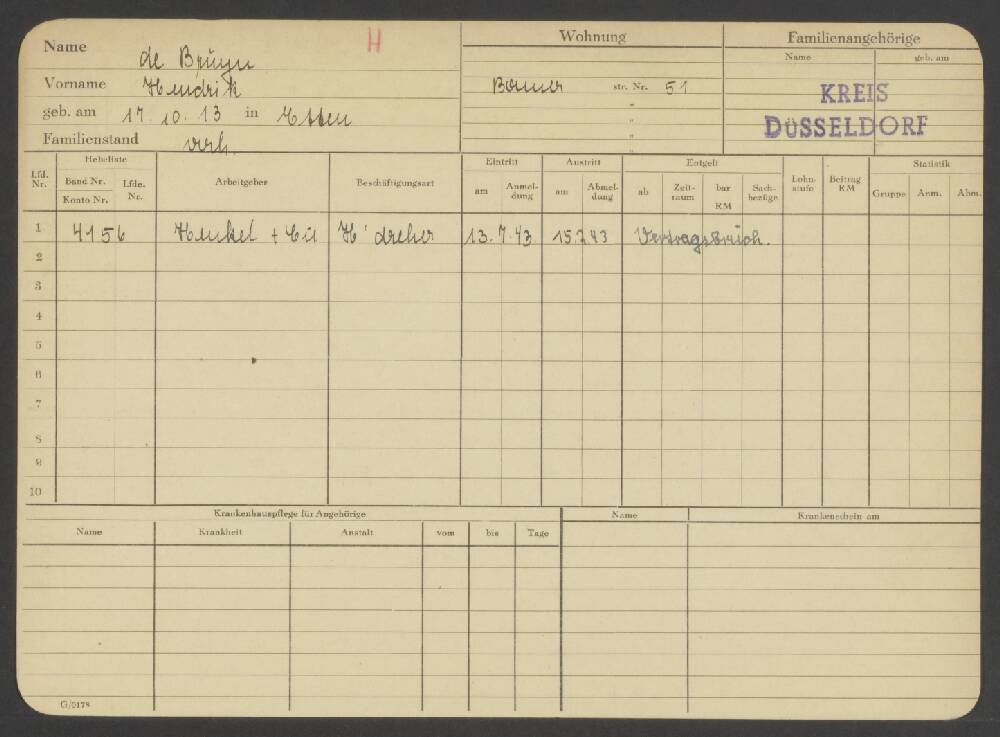 Name de Bruyn H
Vorname Hendrik
geb. am 17.10.13 in Etten
Familienstand verh.
Wohnung
str. Nr. 51
"
"
"
Familienangehörige
Name geb. am
KREIS
DÜSSELDORF
Lfd. Nr. Hebeliste Arbeitgeber Beschäftigungsart Eintritt Austritt Entgelt Lohnstufe Beitrag RM Statistik
Band Nr. Lfde. Nr. am Anmeldung am Abmeldung ab Zeitraum bar RM Sachbezüge Gruppe Anm. Abm.
Konto Nr.
1 4156 Henkel + Cie H'dreher 13.7.43 15.7.43 Vertragsbruch.
2
3
4
5
6
7
8
9
10
Krankenhauspflege für Angehörige
Name Krankheit Anstalt vom bis Tage
Name Krankenschein am
G/0178